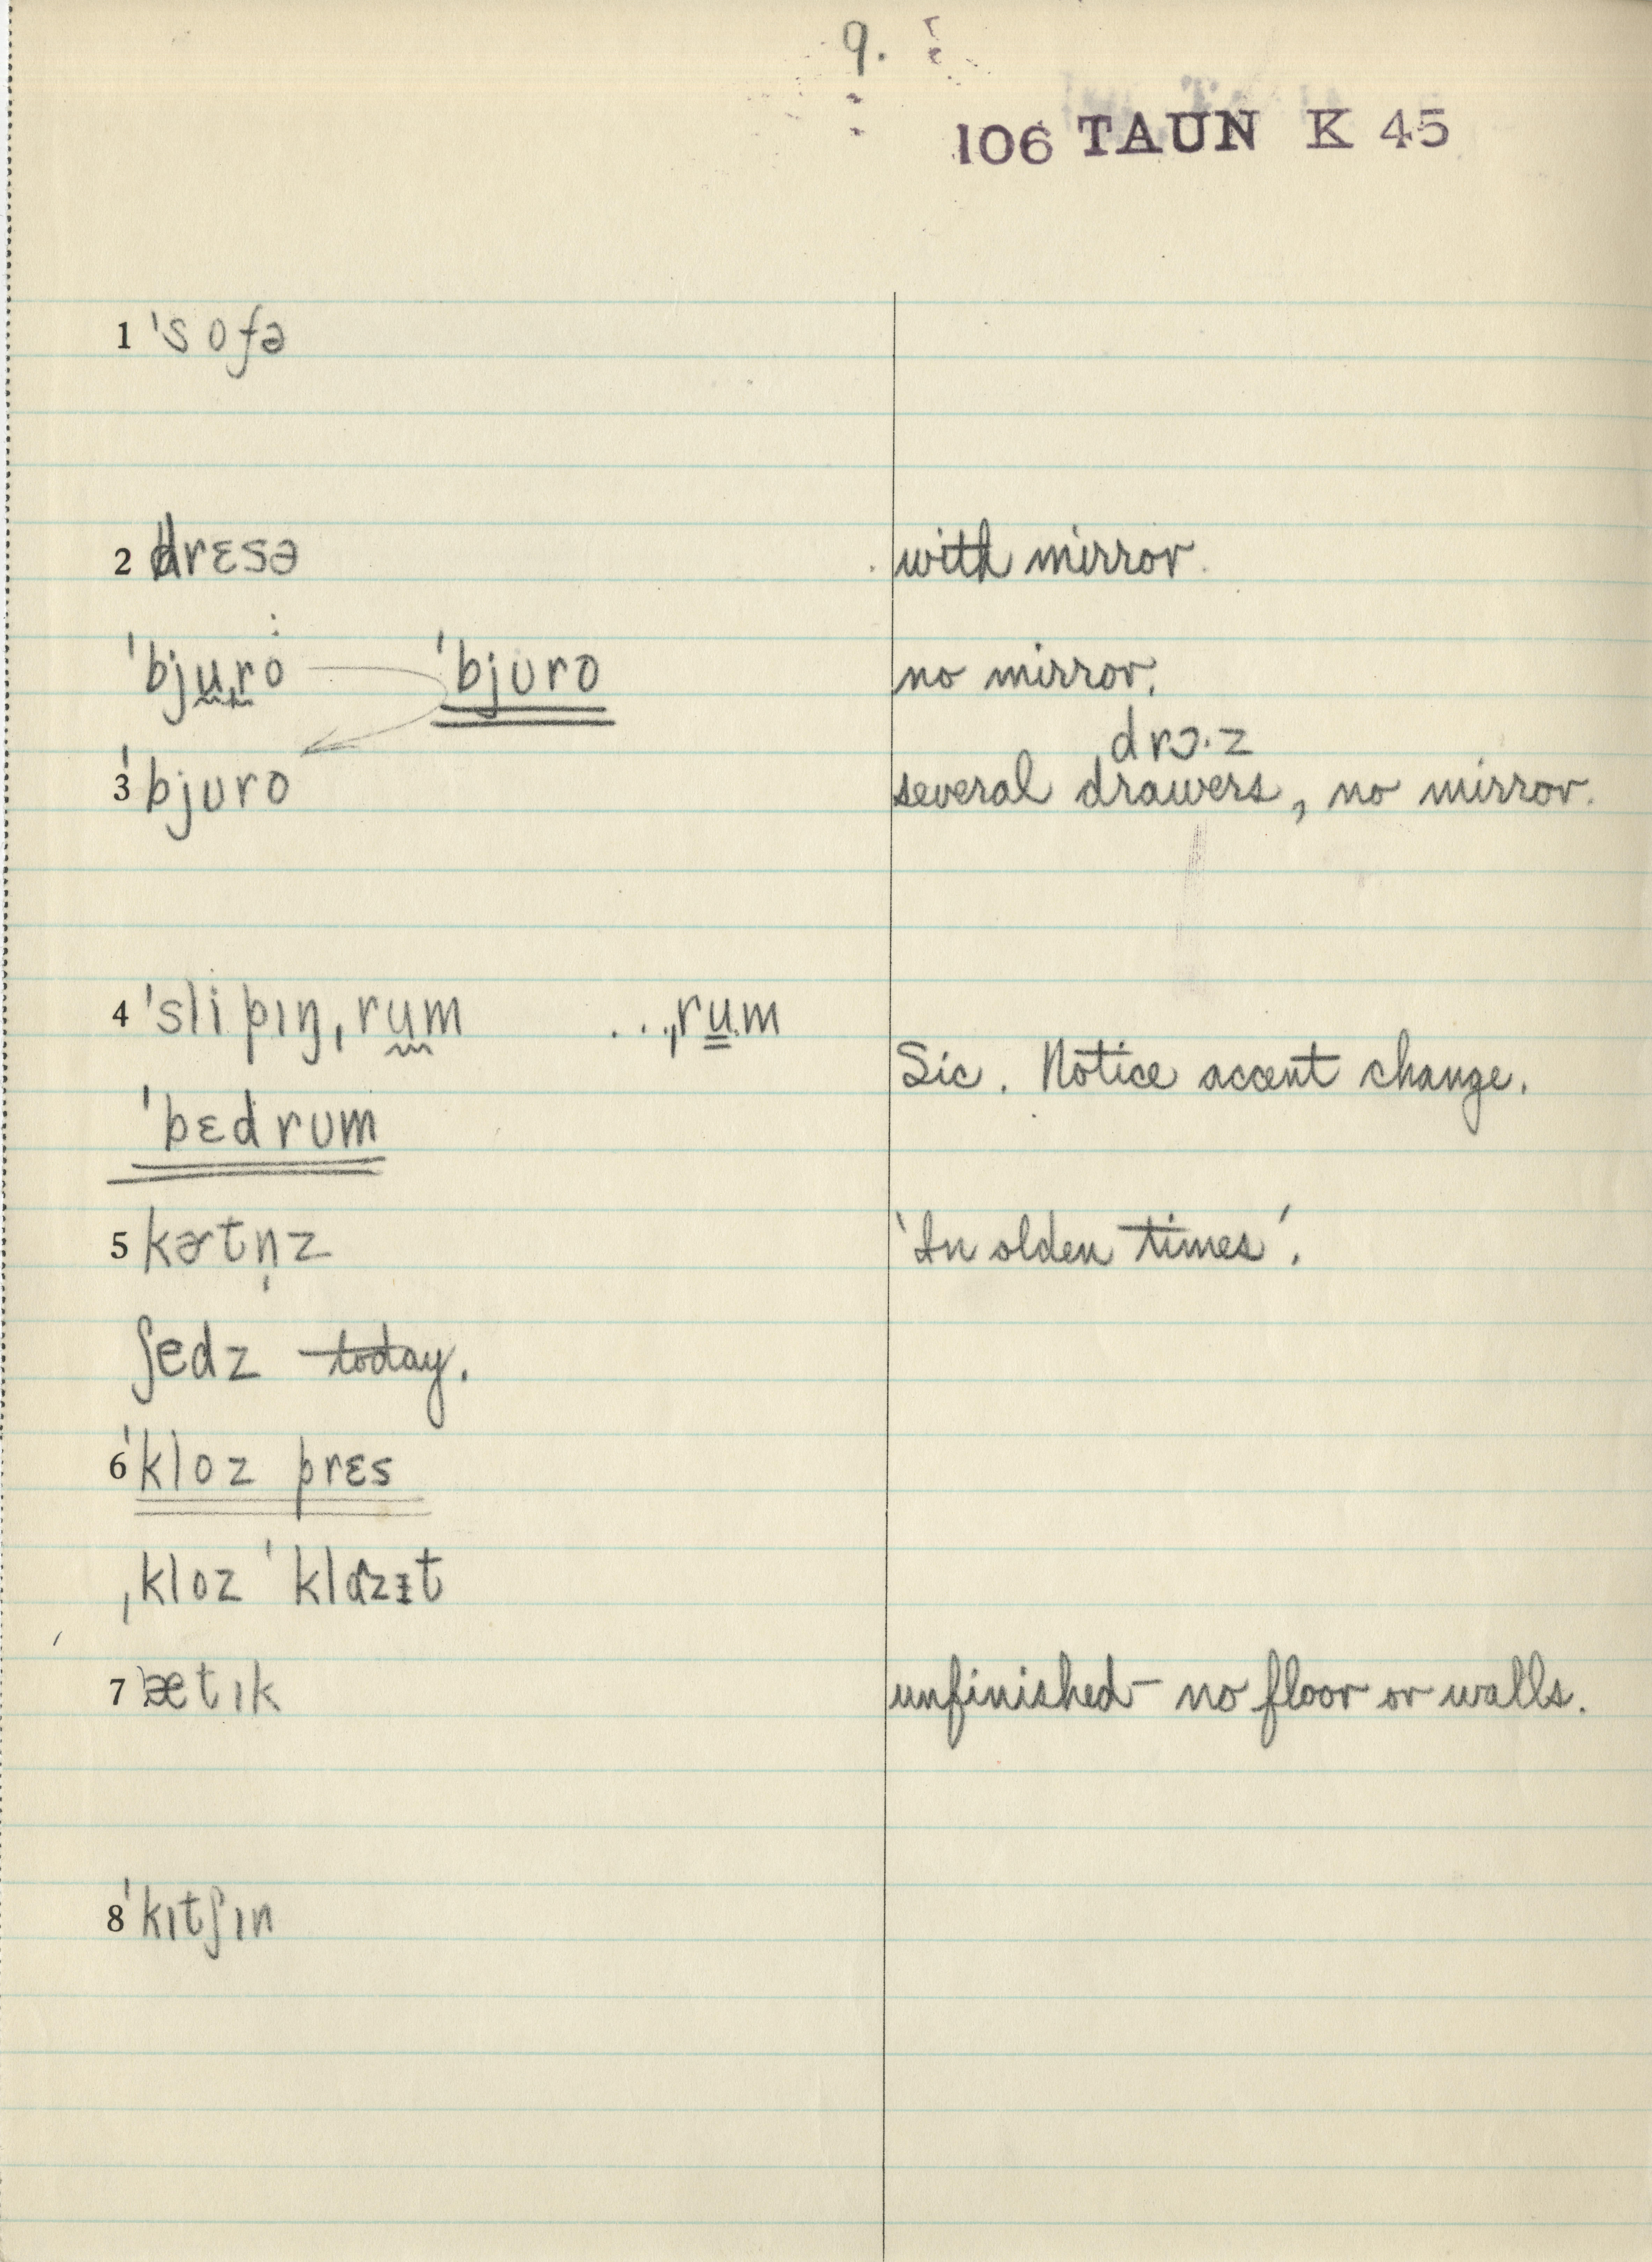 9.
106 TAUN K 45
1 ˈsofə
2 drɛsə with mirror.
ˈbjuro ˈbjʊro no mirror.
drɔ·z
3 ˈbjʊro several drawers, no mirror.
4 ˈslipɪŋˌrum ...ˌrum
Sic. Notice accent change.
ˈbɛdrʊm
5 kɚtn̩z 'In olden times'.
ʃedz today.
6 ˈkloz prɛs
ˌkloz ˈklɑzɪt
7 ˈætɪk unfinished – no floor or walls.
8 ˈkɪtʃɪn